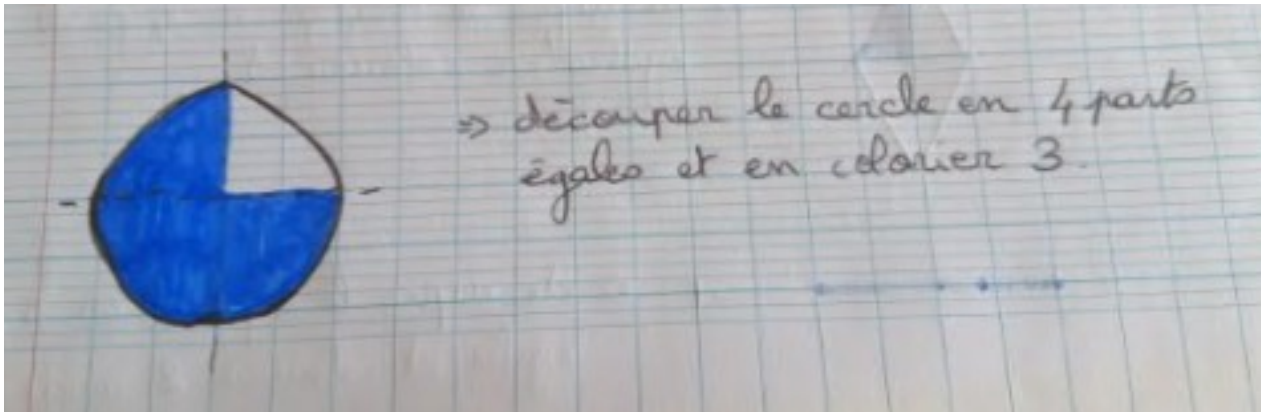 ⇒ découper le cercle en 4 parts
égales et en colorier 3.